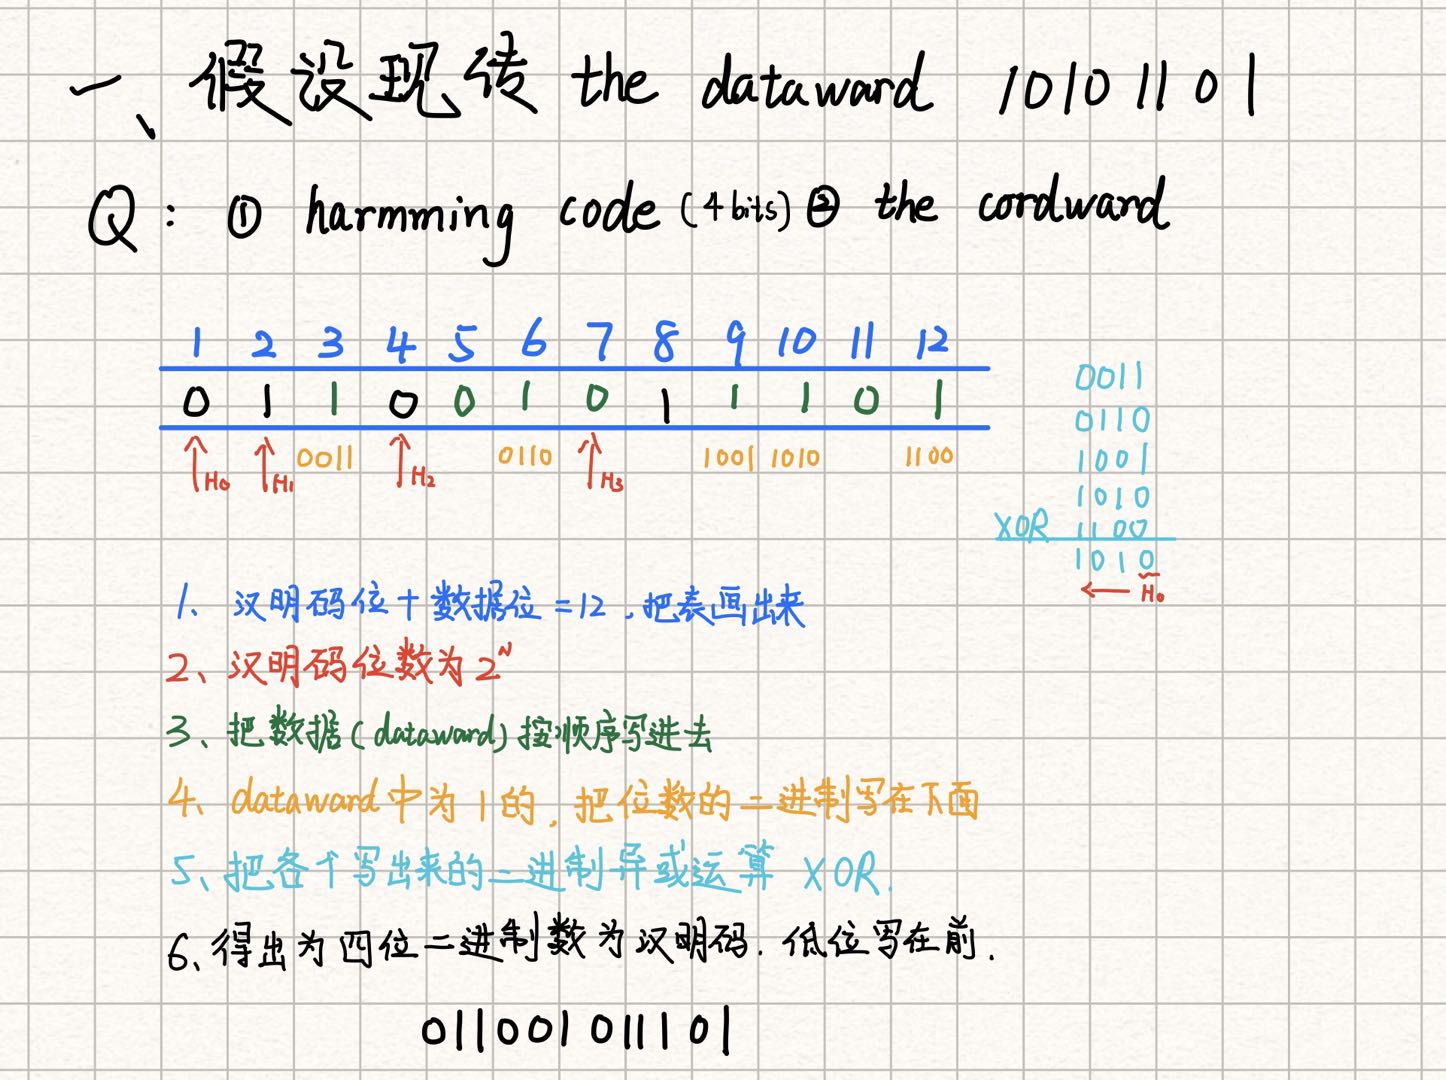 一、假设现传 the dataward 10101101
Q: ① harmming code (4 bits) ② the cordward
1 2 3 4 5 6 7 8 9 10 11 12
0 1 1 0 0 1 0 1 1 1 0 1
H₀ H₁ 0011 H₂ 0110 H₃ 1001 1010 1100
0011
0110
1001
1010
XOR 1100
1010
← H₀
1、汉明码位+数据位=12,把表画出来
2、汉明码位数为2ᴺ
3、把数据(dataward)按顺序写进去
4、dataward中为1的,把位数的二进制写在下面
5、把各个写出来的二进制异或运算 XOR.
6、得出为四位二进制数为汉明码.低位写在前.
011001011101